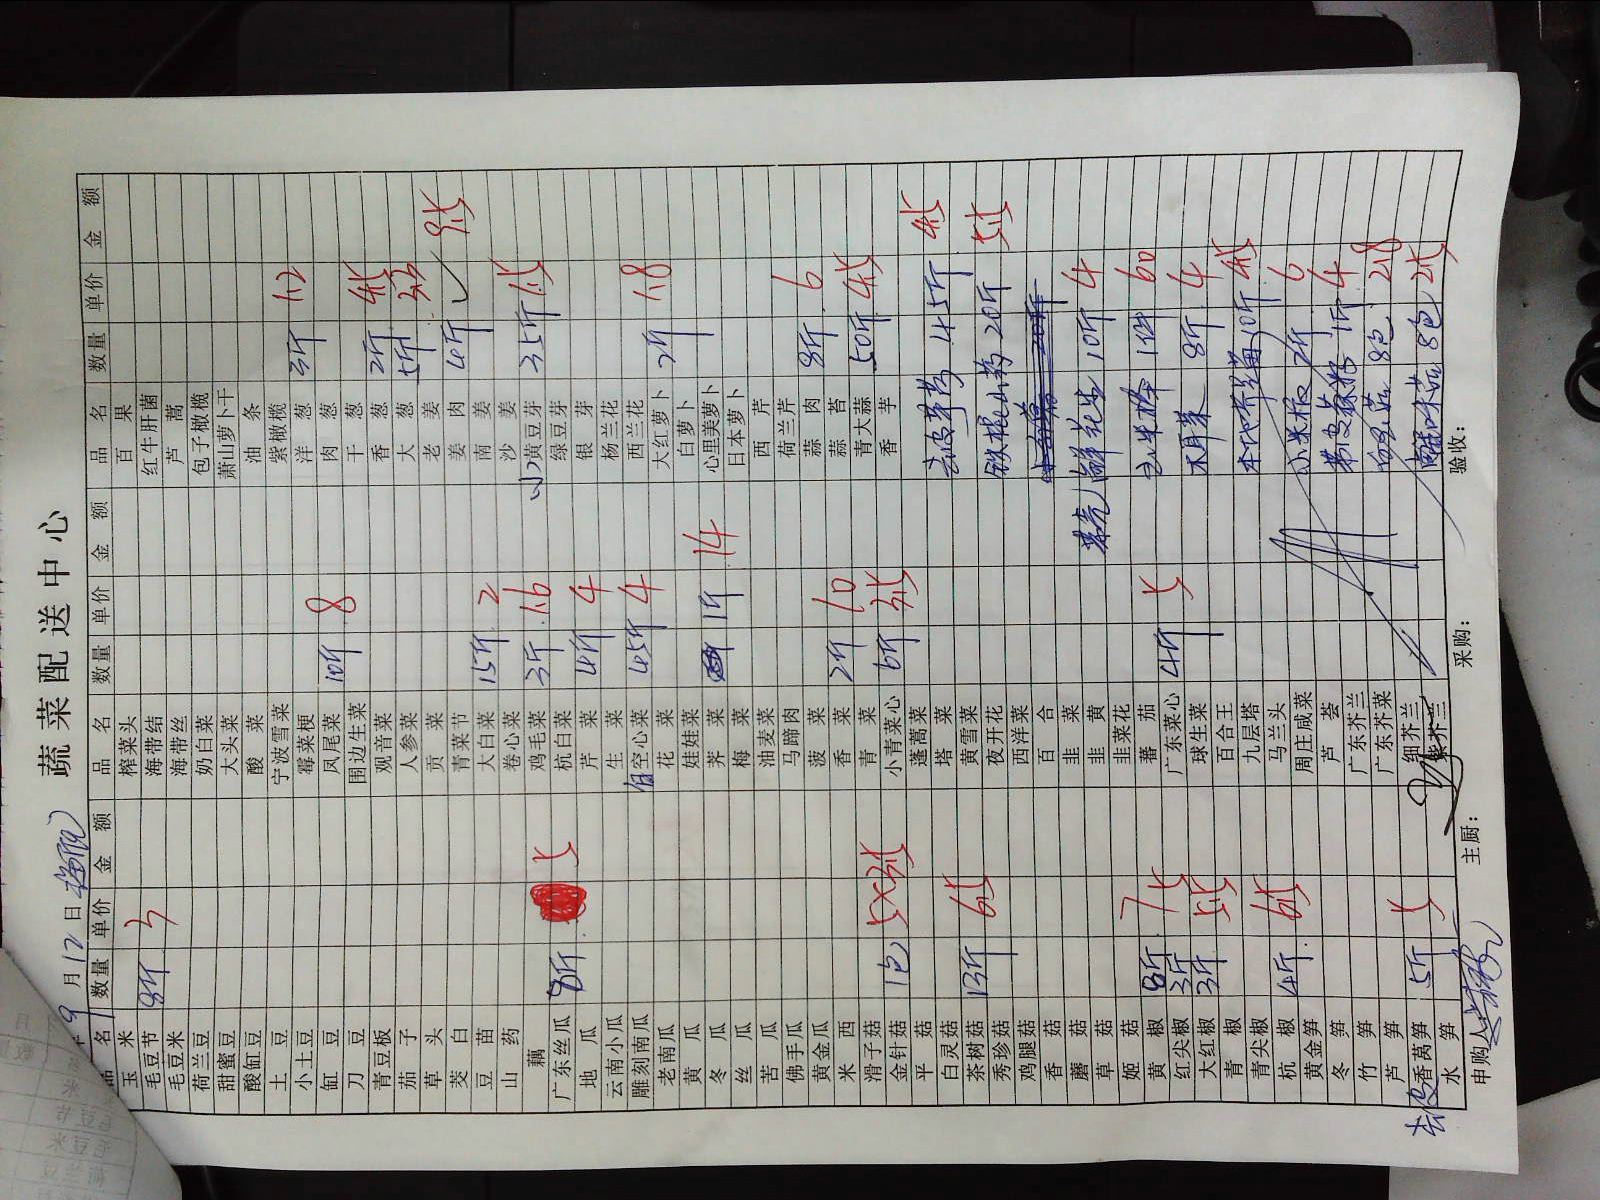 蔬菜配送中心
9月12日
品名 数量 单价 金额 品名 数量 单价 金额 品名 数量 单价 金额
玉米 榨菜头 百果
毛豆节 8斤 3 海带结 红牛肝菌
毛豆米 海带丝 芦蒿
荷兰豆 奶白菜 包子橄榄
甜蜜豆 大头菜 萧山萝卜干
酸缸豆 酸菜 油条
土豆 宁波雪菜 紫橄榄
小土豆 霉菜梗 洋葱 3斤 1.2
缸豆 凤尾菜 10斤 8 肉葱
刀豆 围边生菜 干葱
青豆板 观音菜 香葱 2斤
茄子 人参菜 大葱 5斤
草头 贡菜 老姜
茭白 青菜节 姜肉 4斤
豆苗 大白菜 15斤 2 南姜
山药 卷心菜 沙姜
藕 鸡毛菜 3斤 1.6 小黄豆芽 35斤
广东丝瓜 8斤 杭白菜 绿豆芽
地瓜 芹菜 4斤 4 银芽
云南小瓜 生菜 杨兰花
雕刻南瓜 空心菜 45斤 4 西兰花
老南瓜 花菜 大红萝卜 2斤 1.8
黄瓜 娃娃菜 白萝卜
冬瓜 荠菜 1斤 14 心里美萝卜
丝瓜 梅菜 日本萝卜
苦瓜 油麦菜 西芹
佛手瓜 马蹄肉 荷兰芹
黄金瓜 菠菜 蒜肉 8斤 6
米西 香菜 2斤 10 蒜苔
滑子菇 青菜 青大蒜 50斤
金针菇 1包 小青菜心 6斤 香芋
平菇 蓬蒿菜
白灵菇 塔菜 去皮茅芋 45斤
茶树菇 13斤 黄雪菜
秀珍菇 夜开花 铁棍山药 20斤
鸡腿菇 西洋菜
香菇 百合
蘑菇 韭菜
草菇 韭黄 带壳鲜花生 10斤 4
姬菇 韭菜花
黄椒 8斤 7 蕃茄 玉米棒 1件 60
红尖椒 3斤 广东菜心 4斤
大红椒 3斤 球生菜 木耳菜 8斤 4
青椒 百合王
青尖椒 九层塔 本地芹菜 10斤
杭椒 4斤 马兰头
黄金笋 周庄咸菜 小米椒 2斤 6
冬笋 芦荟
竹笋 广东芥兰 1斤 4
芦笋 广东芥菜 8包 2.8
去皮香莴笋 5斤 细芥兰
水笋 紫芥兰 蟹味菇 8包
申购人 主厨： 采购： 验收：